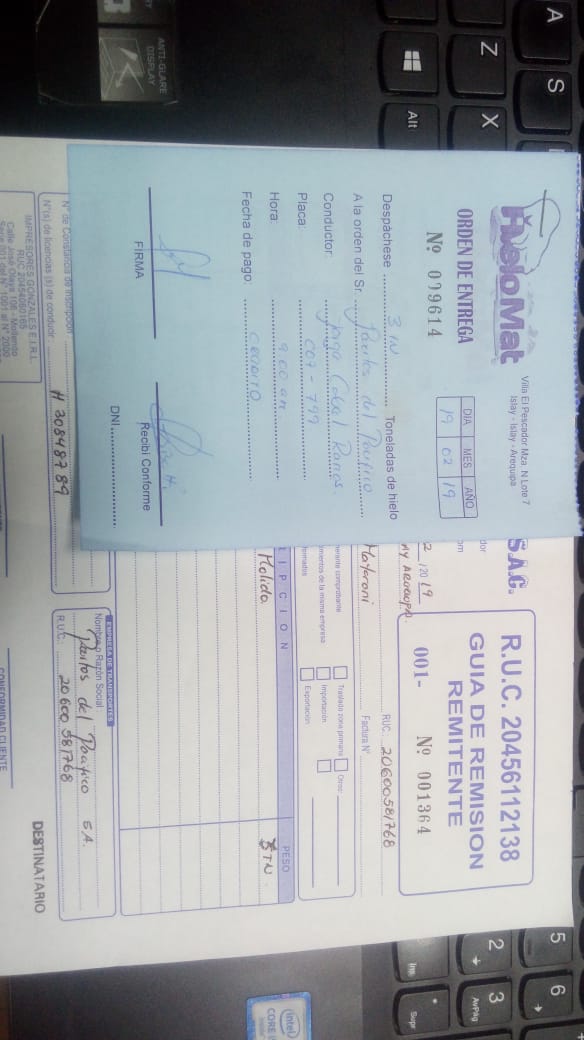 HieloMat
Villa El Pescador Mza. N Lote 7
Islay - Islay - Arequipa
ORDEN DE ENTREGA
Nº 009614
DIA MES AÑO
19 02 19
Despáchese 3 TN Toneladas de hielo
A la orden del Sr. del Pacifico
Conductor: Jorge Ramos
Placa: C07 - 799
Hora: 9:00 am
Fecha de pago: CREDITO
FIRMA
Recibí Conforme
DNI
S.A.C.
R.U.C. 20456112138
GUIA DE REMISION
REMITENTE
001- Nº 001364
2019
RUC. 20600581768
Factura N°
Traslado zona primaria
Otros:
Importación
Exportación
de la misma empresa
PESO
Molido 3 TN.
N° de Constancia de Inscripción
N°(s) de licencias (s) de conducir H 30848789
EMPRESA DE TRANSPORTES
Nombre o Razón Social
del Pacifico SA.
R.U.C. 20600581768
IMPRESORIES GONZALES E.I.R.L.
RUC 20454090165
Calle José Olaya 108 - Mollendo
Serie 001 del N° 1001 al N° 2000
CONFORMIDAD CLIENTE
DESTINATARIO
ANTI-GLARE
DISPLAY
A
S
Z
X
Alt
5
6
2
3
AvPág
Ins
Supr
intel
CORE